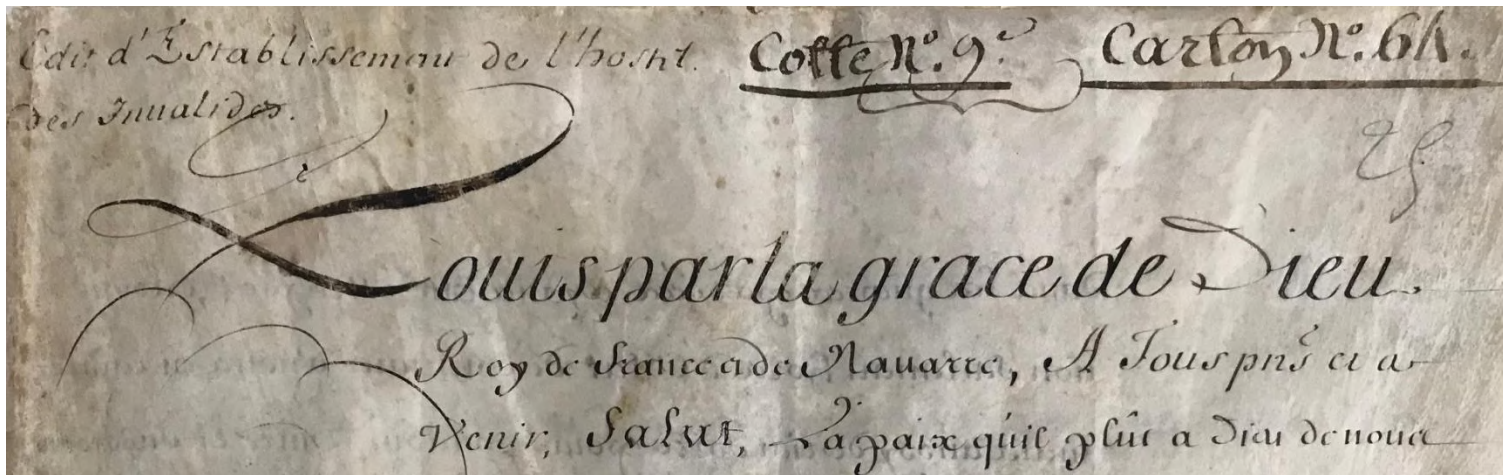 Edit d'Establissemant de l'hostel. Cotte N.º 9.e Carton N.º 64.
des Inualides.
Louis par la grace de Dieu.
Roy de france et de Nauarre, A Tous pns̃ et a
Venir, Salut, La paix quil plût a Dieu de nous